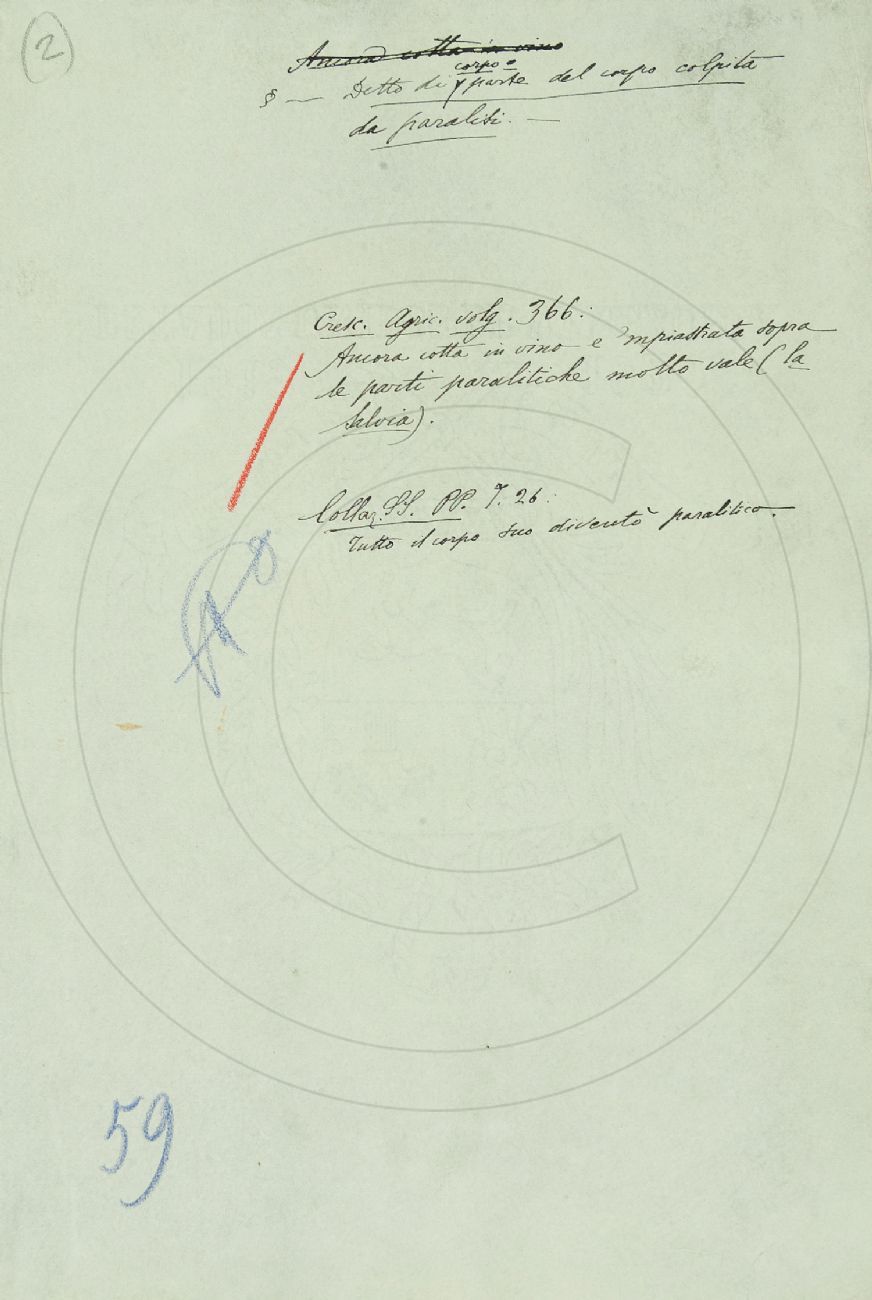 2
Ancora cotta in vino
corpo o
§ — Detto di parte del corpo colpita
da paralisi. —
Cresc. Agric. volg. 366:
Ancora cotta in vino e 'mpiastrata sopra
le parti paralitiche molto vale (la
Salvia).
Collaz. SS. PP. 7. 26:
Tutto il corpo suo diventò paralitico.
59